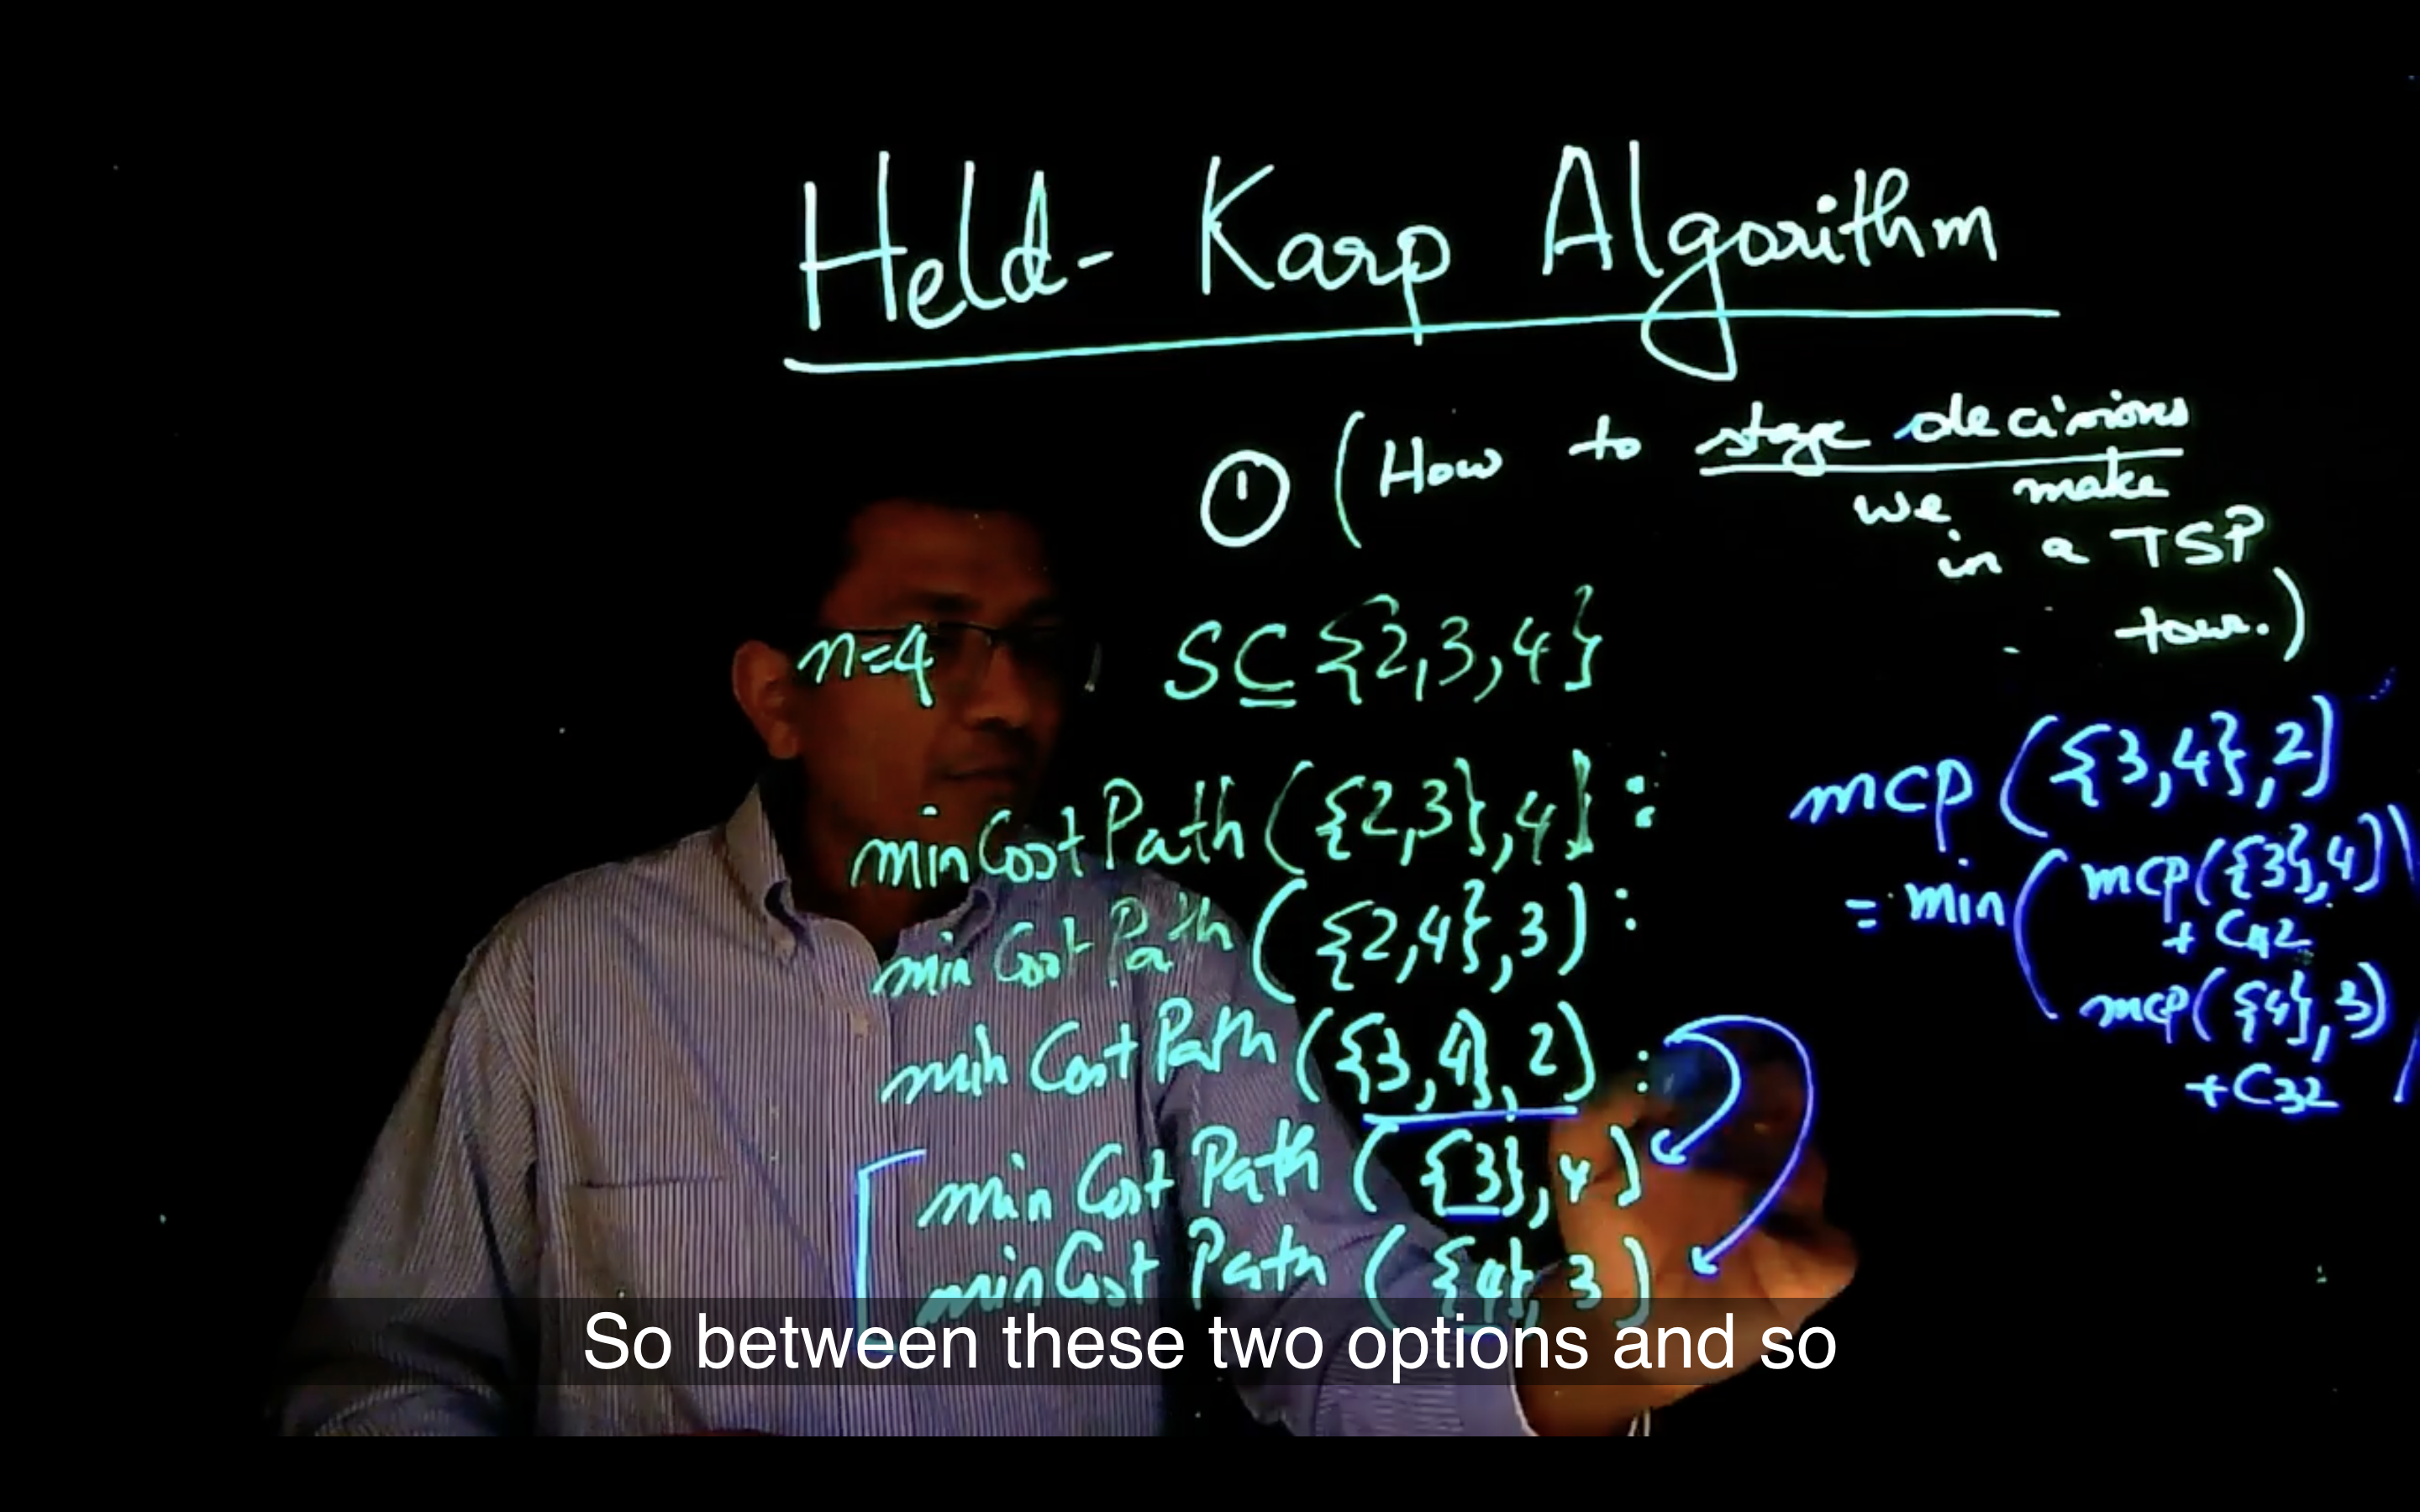 Held-Karp Algorithm
① (How to stage decisions
we make
in a TSP
tour.)
n=4 S⊆{2,3,4}
minCostPath({2,3},4):
minCostPath({2,4},3):
minCostPath({3,4},2):
minCostPath({3},4)
minCostPath({4},3)
mcp({3,4},2)
=min(mcp({3},4)
+C42
mcp({4},3)
+C32)
So between these two options and so